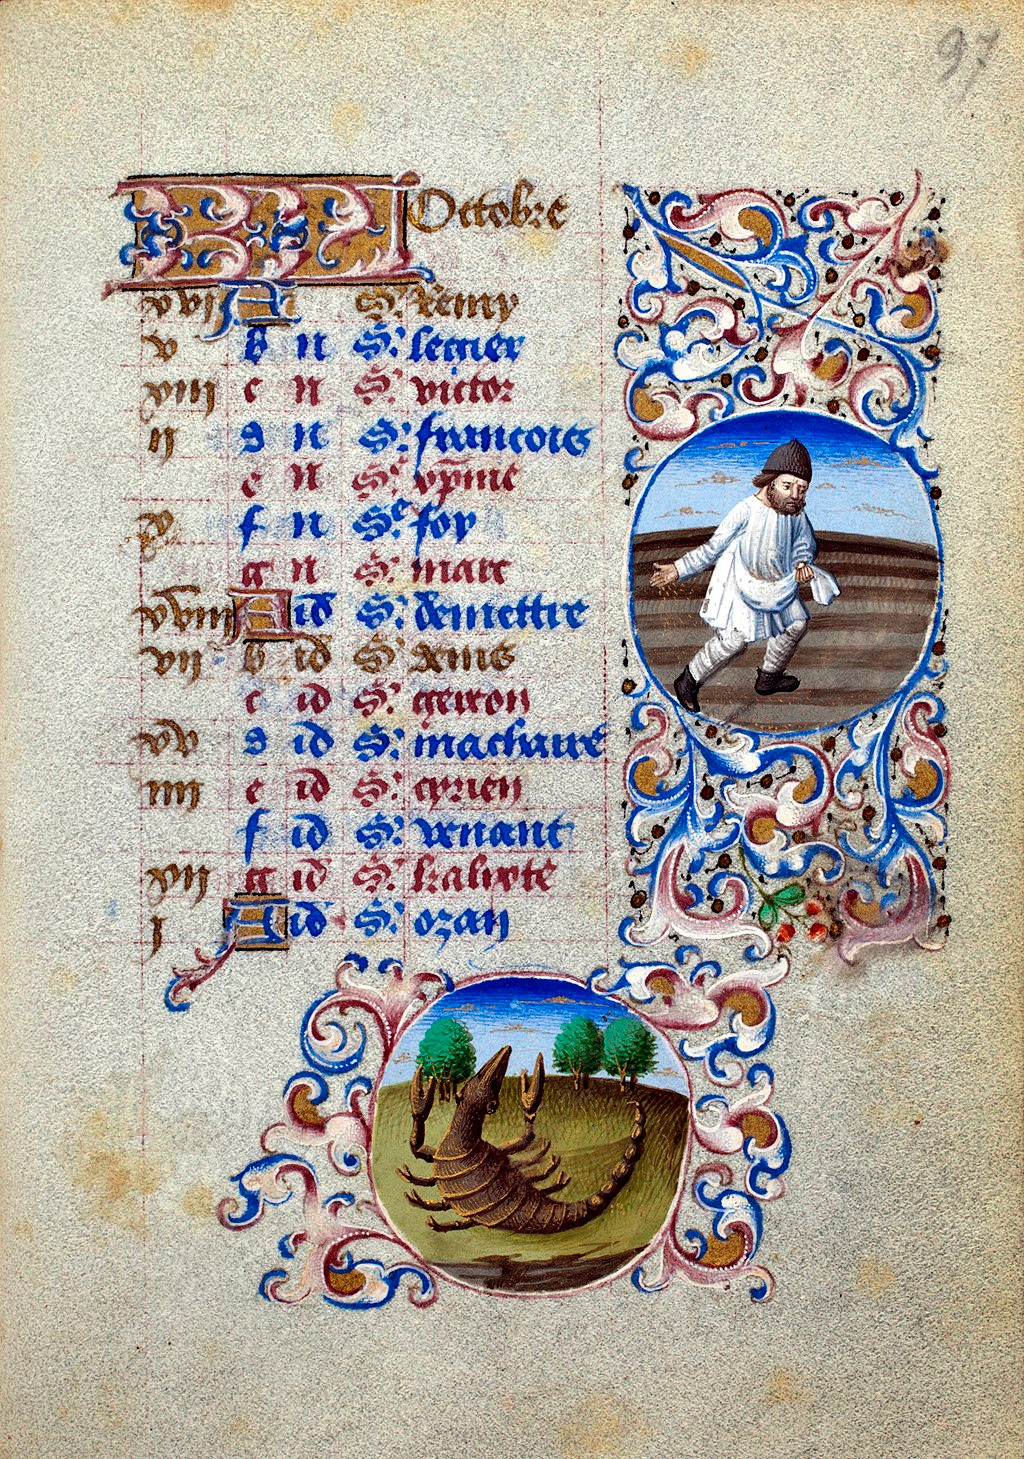 97
KL Octobre
xvi A S. Remy
v b n S. legier
xiii c n S. victor
ii d n S. francois
e n S.
x f n S.e foy
g n S. marc
xviii A id S. demettre
vii b id S. denis
c id S. gereon
xv d id S. machaire
iiii e id S. cyrien
f id S. venant
xii g id S. kalixte
i A id S. ozan